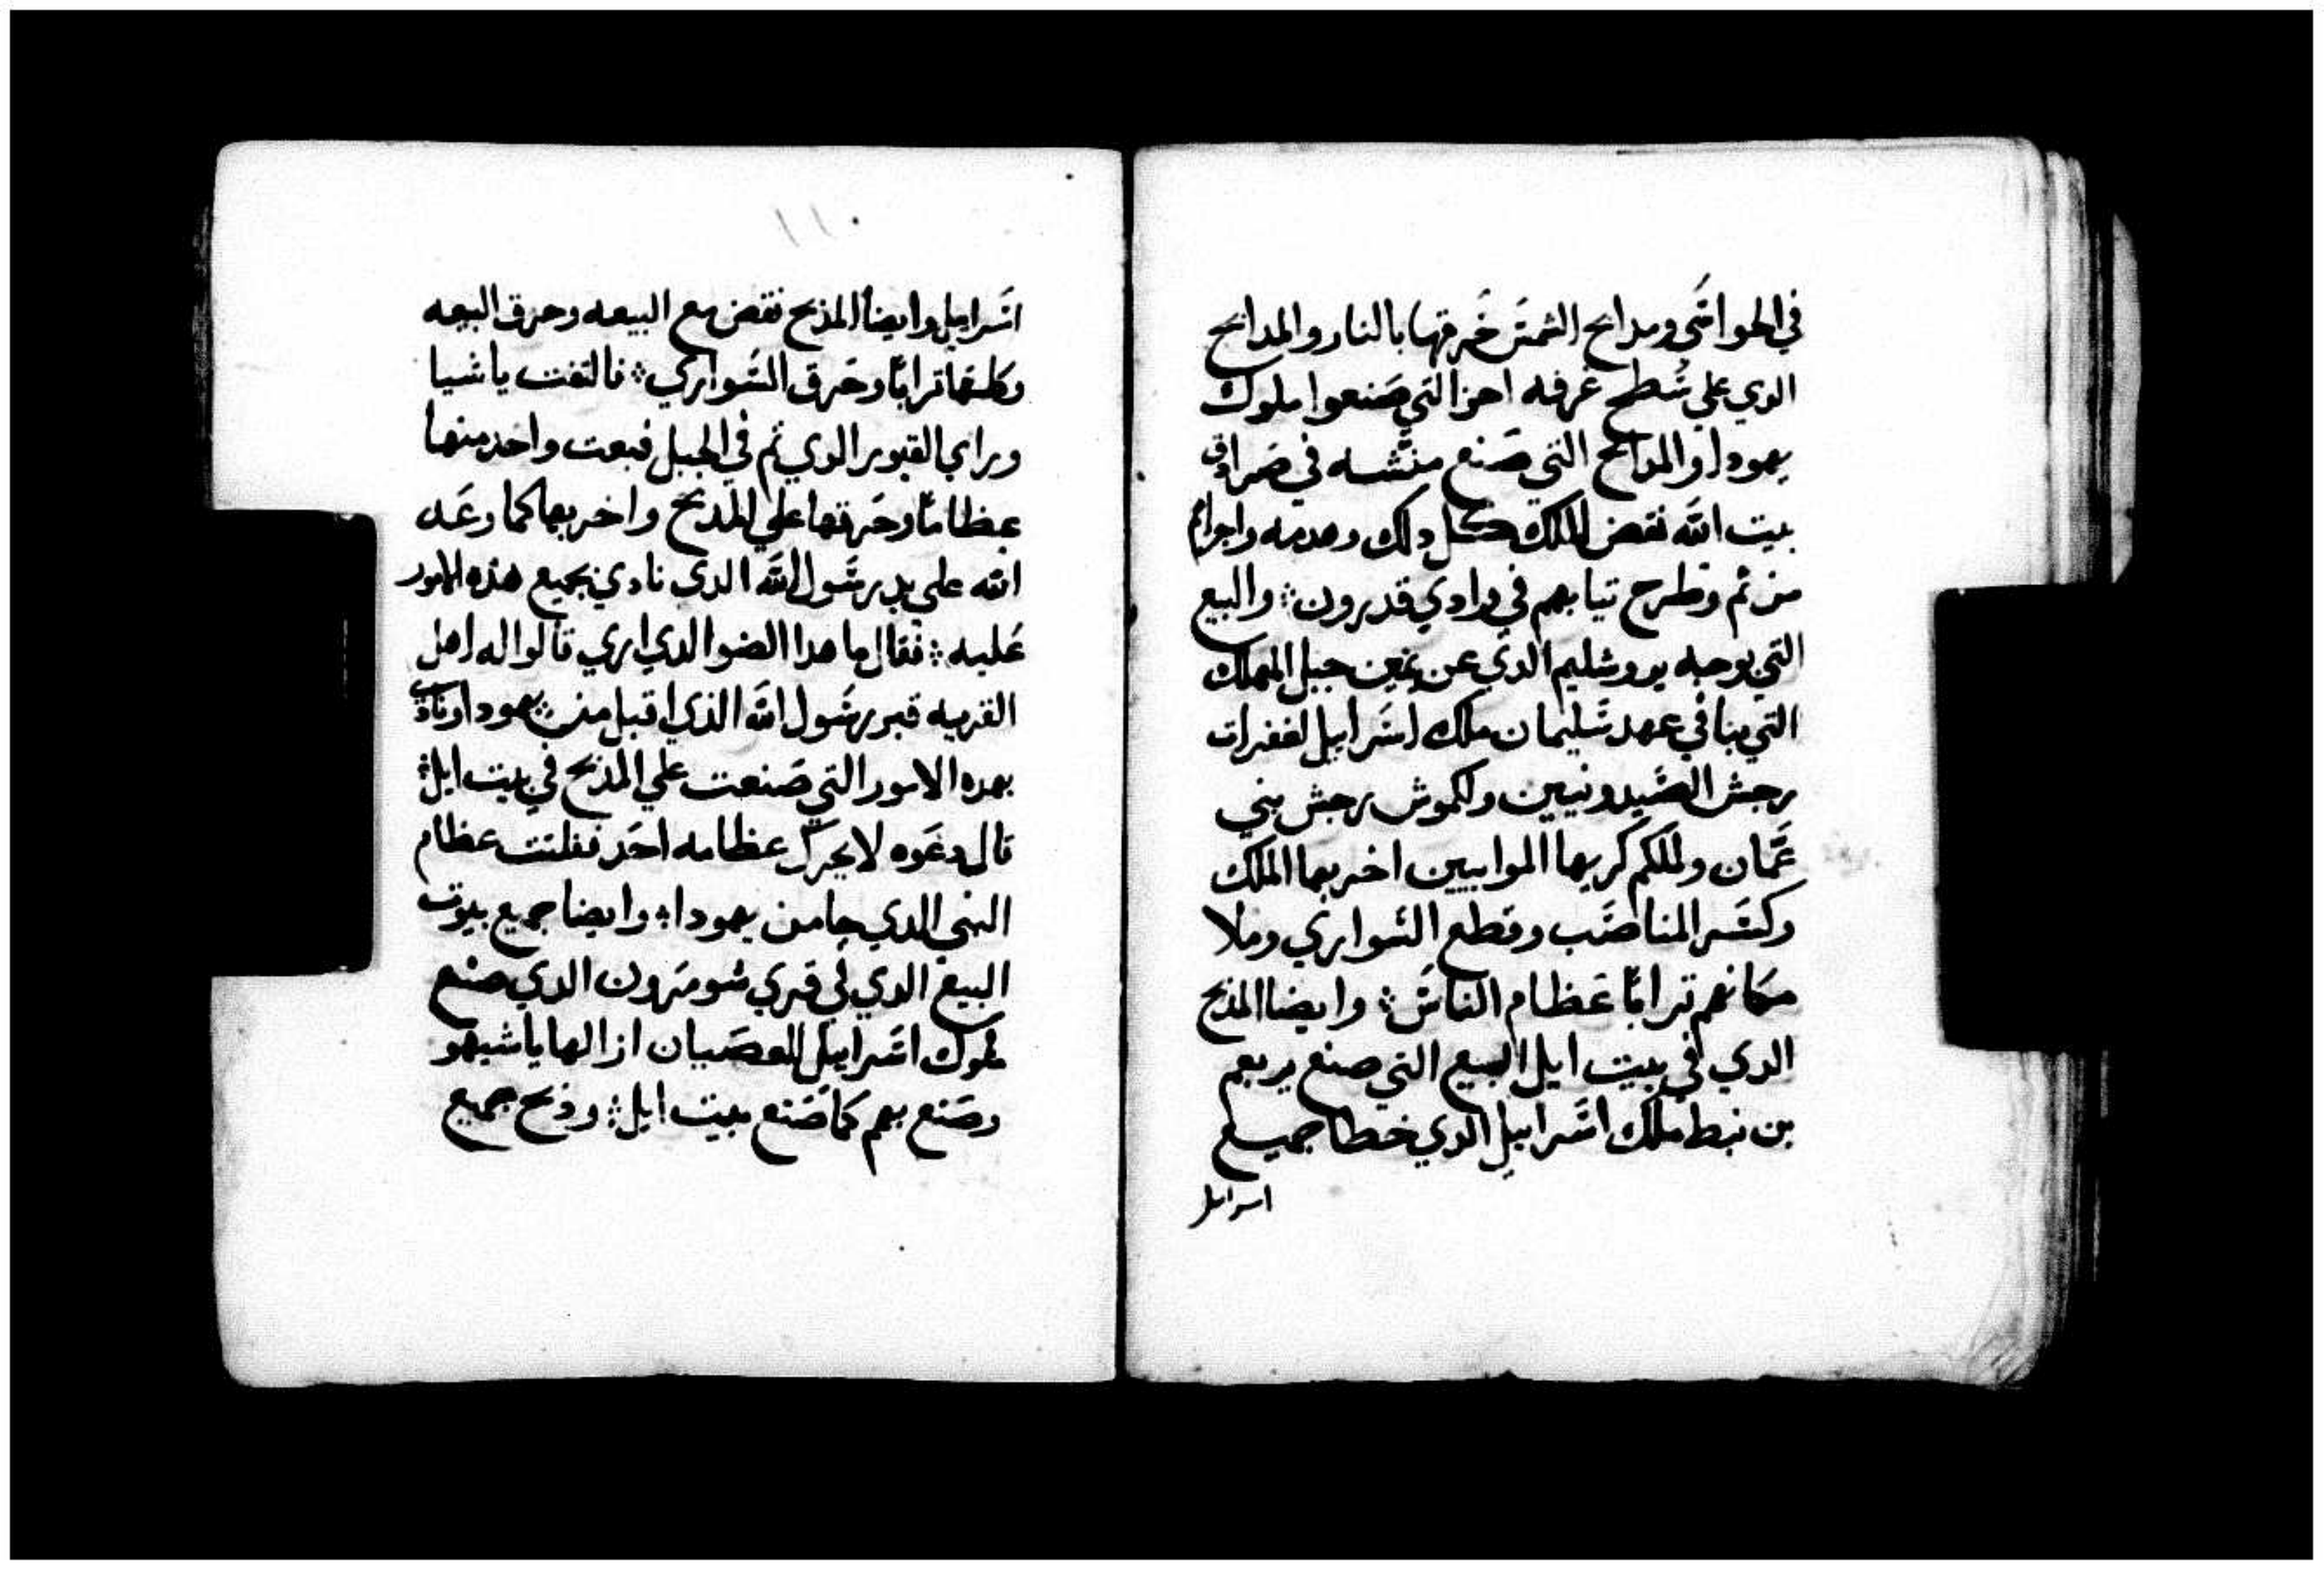 في الحواشي ومدابح الشمش خرقها بالنار والمدابح
الدي علي سطح غرفه احز التي صنعوا ملوك
يهودا والمدابح التي صنع منشه في صرادق
بيت الله نقض الملك كل دلك وهدمه واجراهم
من ثم وطرح تيابهم في وادي قدرون والبيع
التي بوجه يروشليم الدي عن يمين جبل المهلك
التي بنا في عهد سليمان ملك اسرابيل لغفرات
رجش الصيدونيين ولكموش رجش بني
عمان ولملكم كريها الموابيين اخربها الملك
وكسر المناصب وقطع السواري وملا
مكانهم ترابا عظام الناس وايضا المذبح
الدي في بيت ايل البيع التي صنع يربعم
بن نبط ملك اسرابيل الدي خطا جميع
اسرايل
١١٠
اسرايل وايضا المذبح نقض مع البيعه وحرق البيعه
وكلسها ترابا وحرق السواري فالتفت ياشيا
وراي القبور الدي ثم في الجبل فبعت واخد منها
عظاما وحرقها علي المدبح واخربها كما وعد
الله علي يد رسول الله الدي نادي بجميع هذه الامور
عليه فقال ما هدا الضو الدي اري قالوا له اهل
القريه قبر رسول الله الذي اقبل من يهودا ونادي
بهده الامور التي صنعت علي المذبح في بيت ايل
قال دعوه لا يحرك عظامه احد ففلتت عظام
النبي الدي جا من يهودا وايضا جميع بيوت
البيع الدي في قري شومرون الدي صنع
ملوك اسرابيل للعصيان ازالها ياشيهو
وصنع بهم كما صنع ببيت ايل وذبح جميع